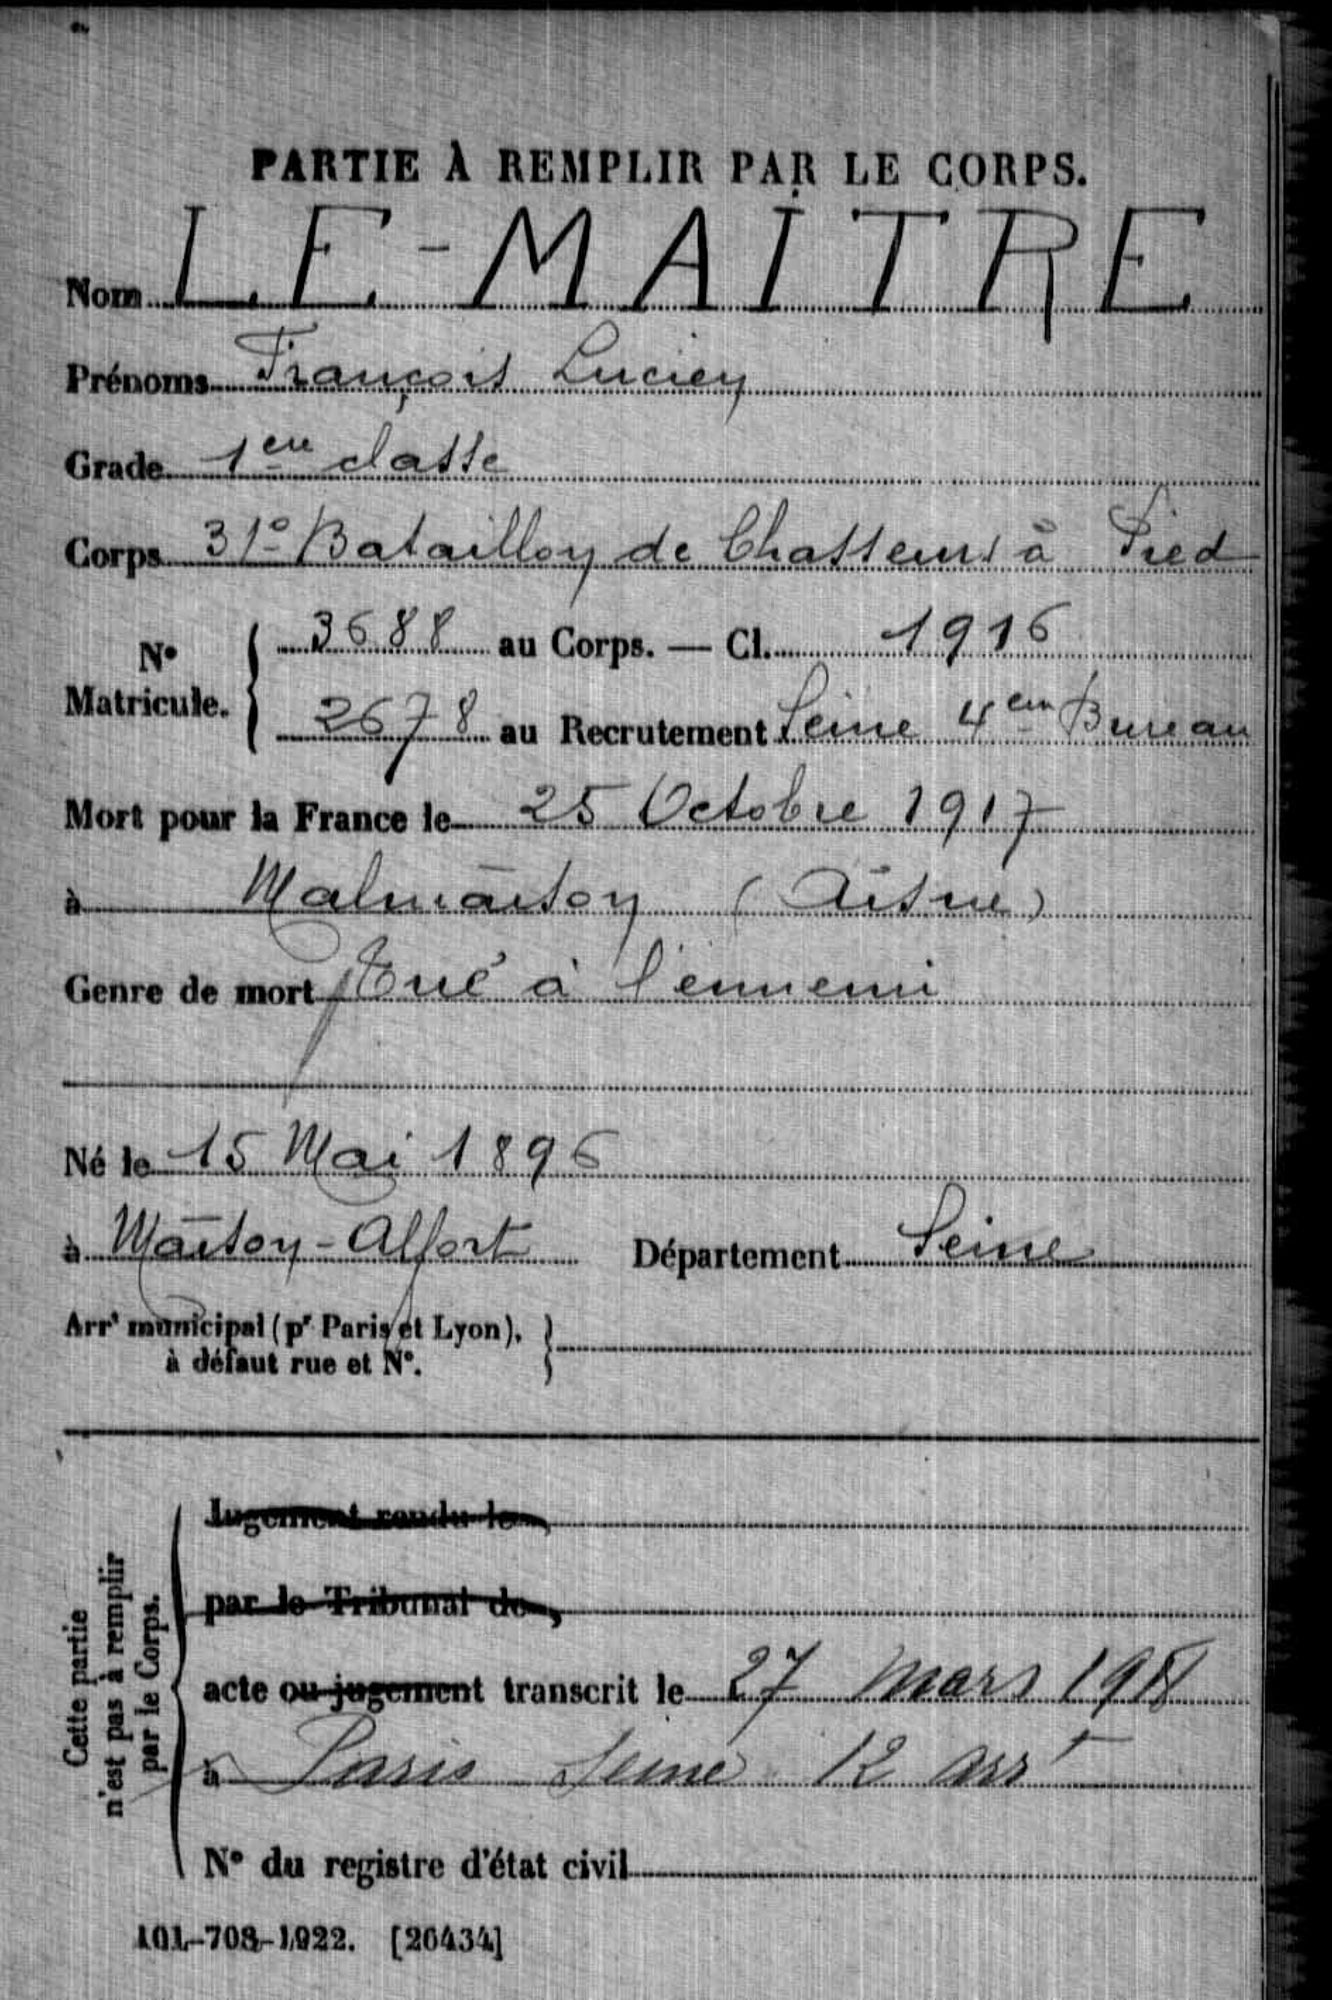 PARTIE À REMPLIR PAR LE CORPS.
Nom LE-MAITRE
Prénoms François Lucien
Grade 1ere classe
Corps 31e Bataillon de Chasseurs à Pied
N° Matricule. { 3688 au Corps. — Cl. 1916
2678 au Recrutement Seine 4em Bureau
Mort pour la France le 25 Octobre 1917
à Malmaison (Aisne)
Genre de mort Tué à l'ennemi
Né le 15 Mai 1896
à Maison-Alfort Département Seine
Arrt municipal (pr Paris et Lyon), }
à défaut rue et N°.
Cette partie
n'est pas à remplir
par le Corps.
Jugement rendu le
par le Tribunal de
acte ou jugement transcrit le 27 mars 1918
à Paris Seine 12 arrt
N° du registre d'état civil
101-708-1922. [26434]